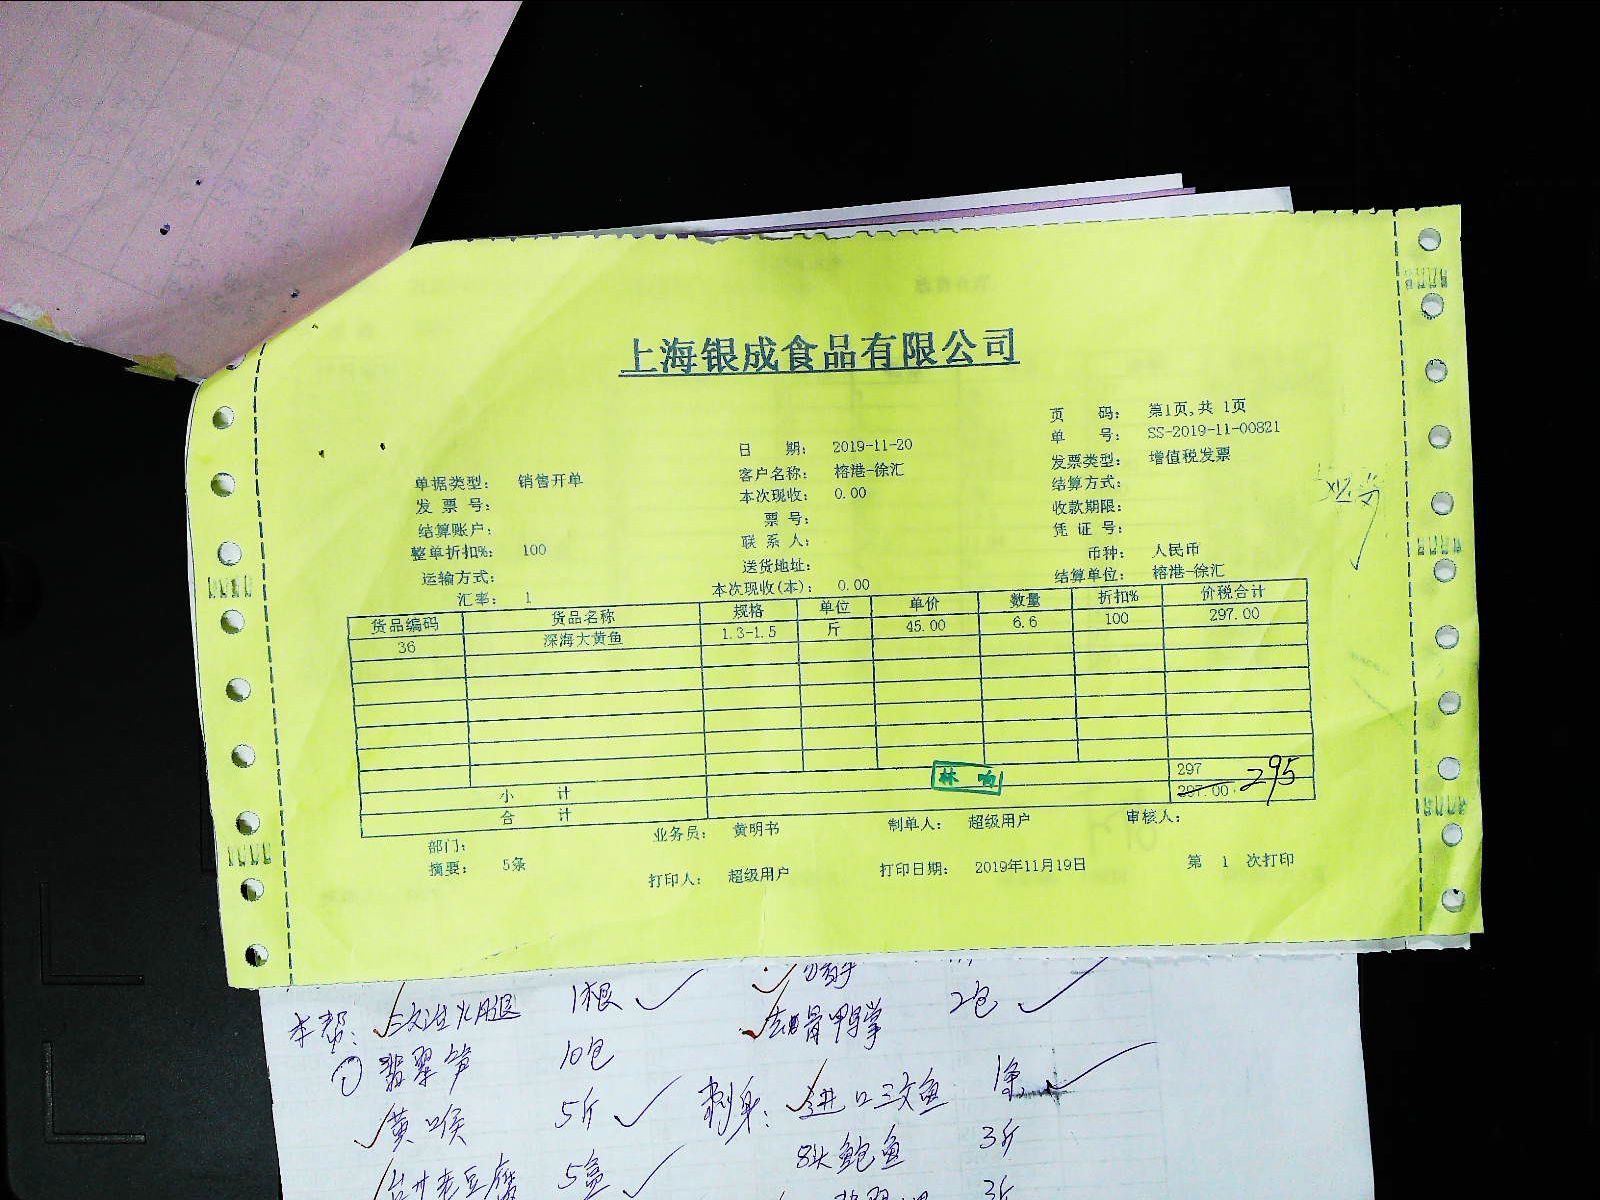 上海银成食品有限公司
页 码: 第1页,共 1页
日 期: 2019-11-20 单 号: SS-2019-11-00821
单据类型: 销售开单 客户名称: 榕港-徐汇 发票类型: 增值税发票
发 票 号: 本次现收: 0.00 结算方式:
结算账户: 票 号: 收款期限:
整单折扣%: 100 联 系 人: 凭 证 号:
运输方式: 送货地址: 币种: 人民币
汇率: 1 本次现收(本): 0.00 结算单位: 榕港-徐汇
货品编码 货品名称 规格 单位 单价 数量 折扣% 价税合计
36 深海大黄鱼 1.3-1.5 斤 45.00 6.6 100 297.00
小 计 297
合 计 297.00 295
部门: 业务员: 黄明书 制单人: 超级用户 审核人:
摘要: 5条 打印人: 超级用户 打印日期: 2019年11月19日 第 1 次打印
本帮: 1根
去骨鸭掌 2包
① 翡翠笋 10包
黄喉 5斤 刺身: 进口三文鱼 1条
8头鲍鱼 3斤
老豆腐 5盒
3斤